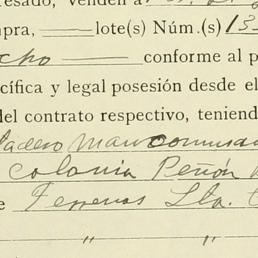 esado, venden a
mpra, —— lote(s) Núm.(s) 13
cho —— conforme al p
cífica y legal posesión desde el
del contrato respectivo, teniend
ladero mancomunad
colonia Peñón
e Terrenos Lla.
" "